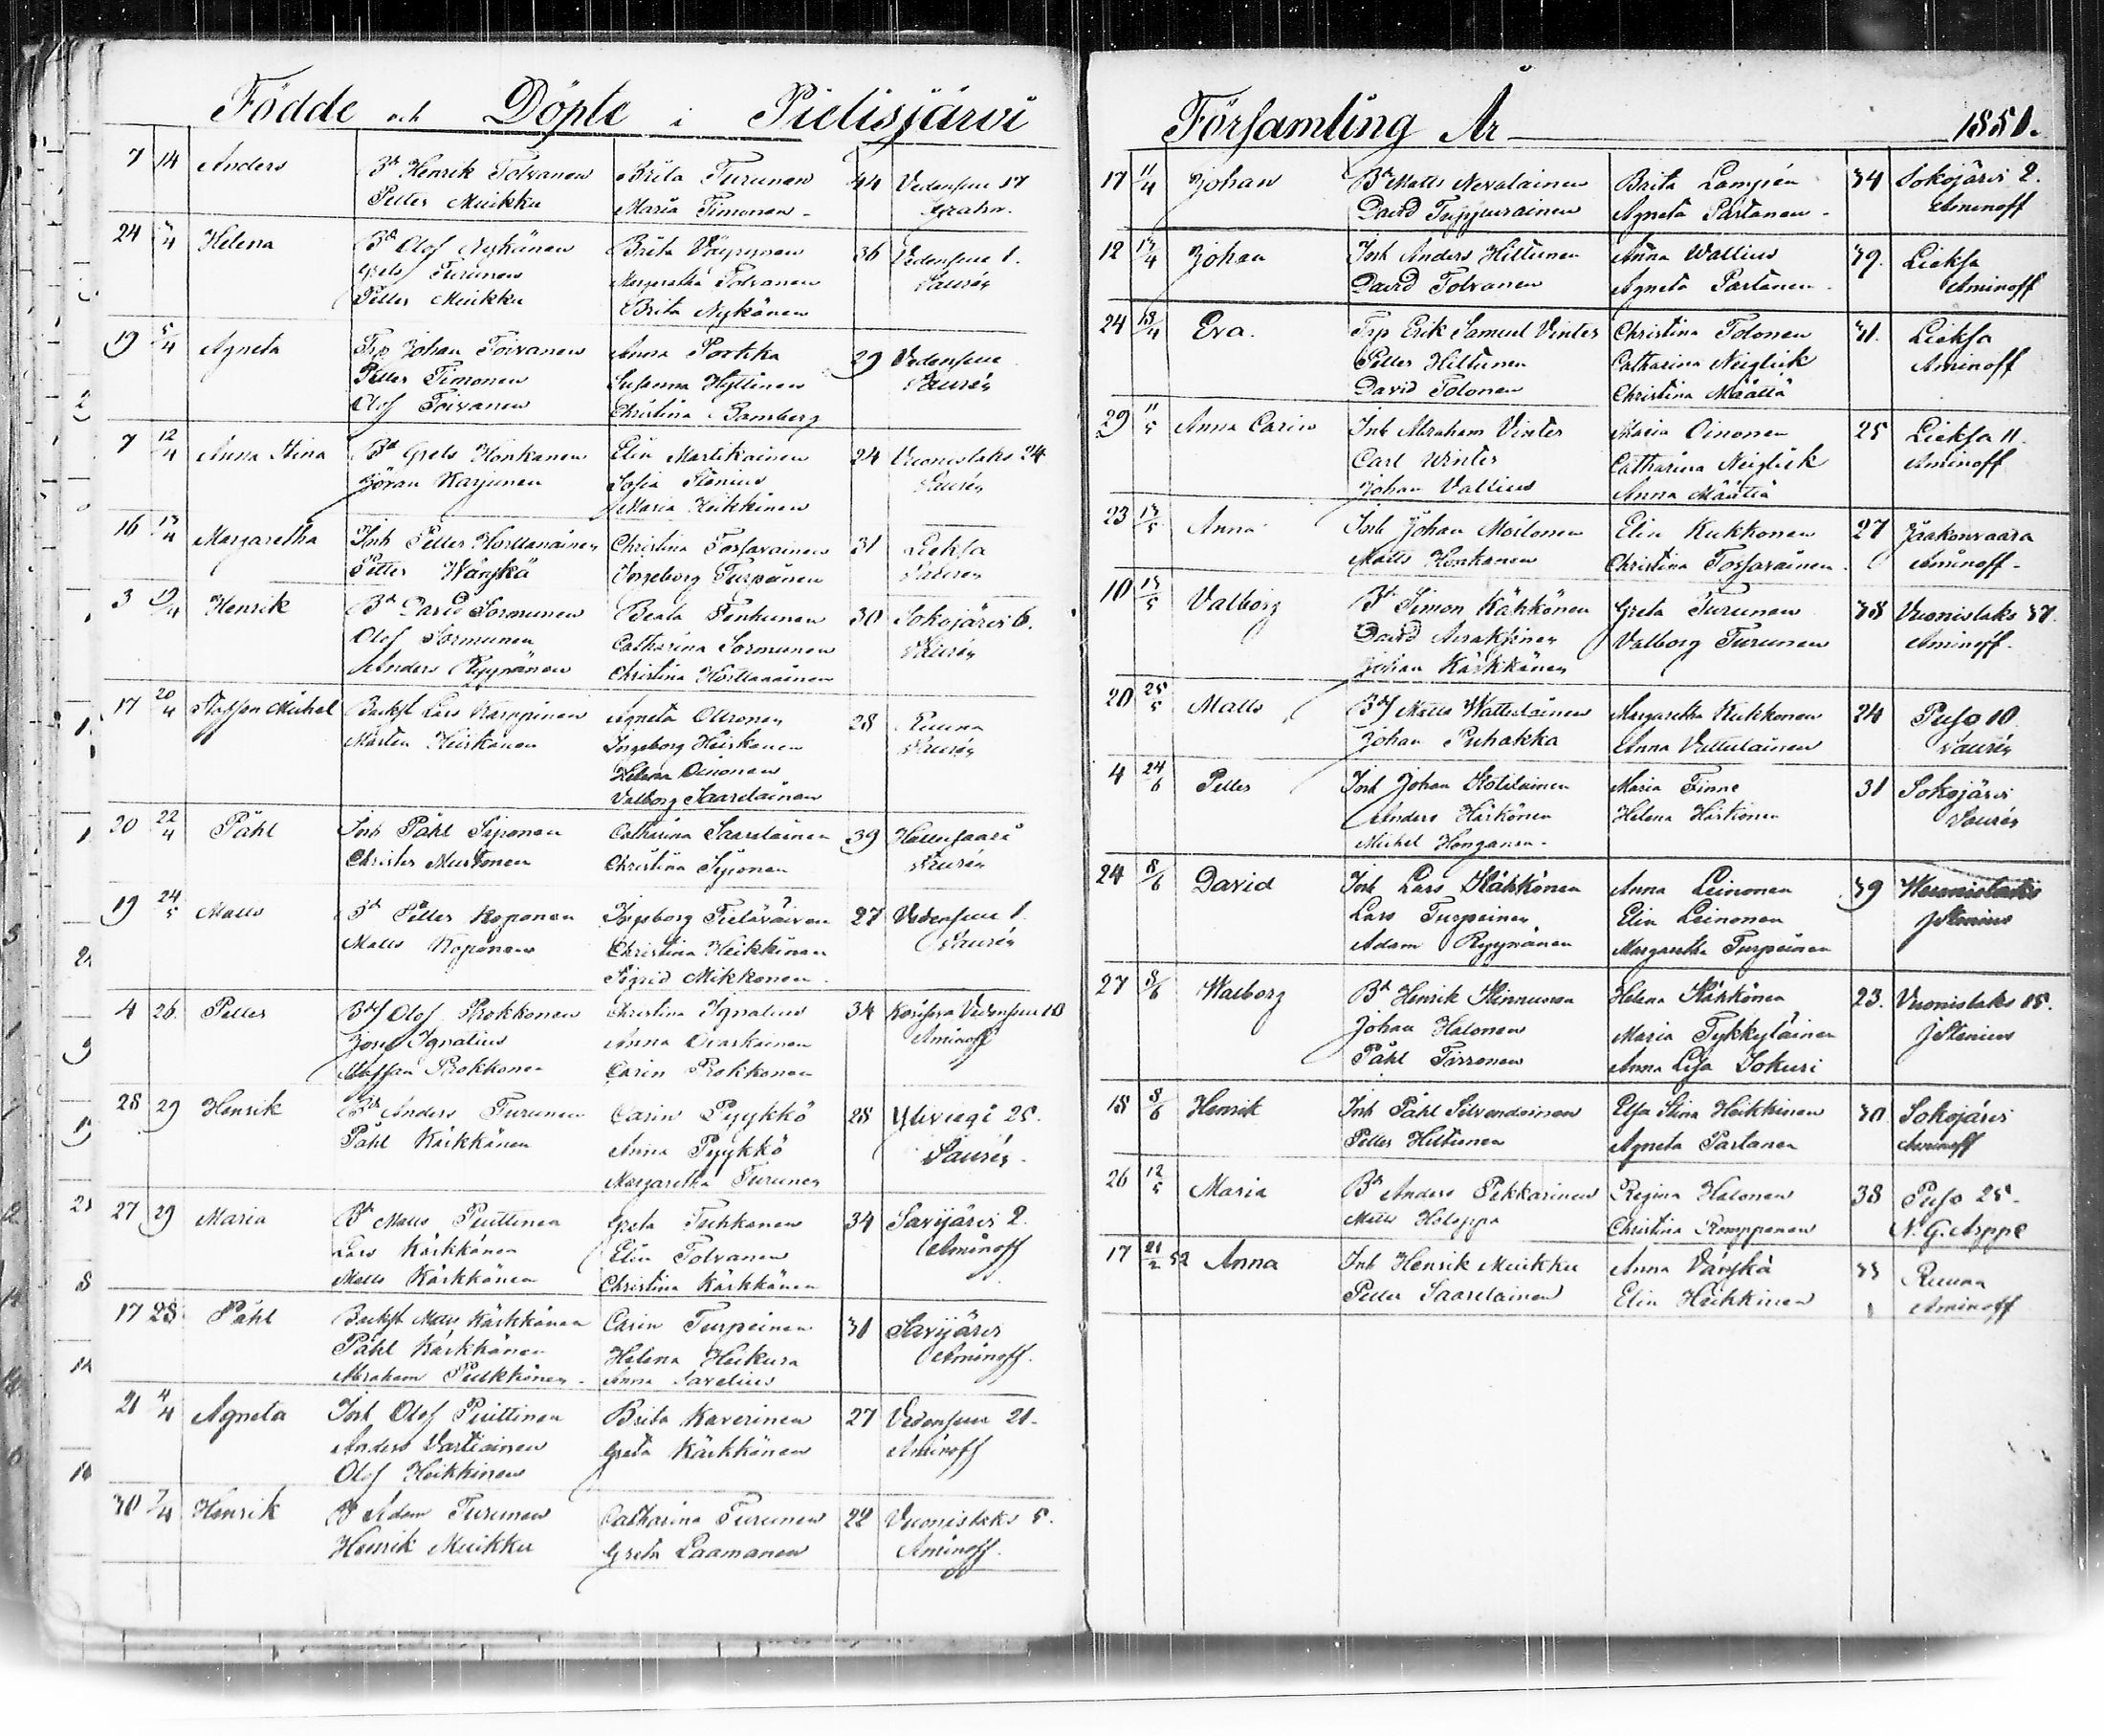 Födde och Döpte i Pielisjärvi
7 14 Anders Bd Henrik Tolvanen Brita Turunen 44 Vedensuu 17
Petter Muikku Maria Timonen
24 Helena Bd Olof Nykänen Brita 36 Vedensuu 1.
Grels Turunen Margaretha Tolvanen Saurén
Petter Muikku Brita Nykänen
19 5/4 Agneta Trp Johan Toivanen Anna Portka 29 Vedensuu
Petter Timonen Susanna Hyttinen Saurén
Olof Toivanen Christina Bamberg
7 12/4 Anna Stina Bd Grels Honkanen Elin Martikainen 24 Vuonislaks 24
Göran Karjunen Sofia Stenius Saurén
Maria Heikkinen
16 13/4 Margaretha Inh Petter Horttanainen Christina Torfvainen 31 Lieksa
Petter Wänskä Ingeborg Turpeinen Saurén
3 19/4 Henrik Bd David Sormunen Beata Tenhunen 30 Sokojärvi 6.
Olof Sormunen Catharina Sormunen Saurén
Anders Ryynänen Christina Horttanainen
17 20/4 Staffan Michel Backst Lars Kamppinen Agneta Ollronen 28 Ruuna
Mårten Heiskanen Ingeborg Heiskanen Saurén
Helena Oinonen
Valborg Saarelainen
20 22/4 Påhl Inh Påhl Siponen Catharina Saarelainen 39
Christer Mustonen Christina Siponen Saurén
19 24/5 Matts Bd Petter Koponen Ingeborg 27 Vedensuu 1
Matts Koponen Christina Heikkinen Saurén
Sigrid Mikkonen
4 26. Petter Bdf Olof Prokkonen Christina Ignatius 34 Vedensuu 10
Ignatius Anna Aminoff
Staffan Prokkonen Carin Prokkonen
28 29 Henrik Bd Anders Turunen Carin Pyykkö 28 Yliviegi 25.
Påhl Kärkkänen Anna Pyykkö Saurén.
Margaretha Turunen
27 29 Maria Bd Matts Puittinen Greta Tuhkanen 34 Savijärvi 2.
Lars Kärkkänen Elin Tolvanen Aminoff
Matts Kärkkänen Christina Kärkkänen
17 28 Påhl Backst Matts Kärkkänen Carin Turpeinen 31 Savijärvi
Påhl Kärkkänen Helena Heikura Aminoff.
Abraham Pulkkinen Anna Savelius
21 4/4 Agneta Inh Olof Puittinen Brita Kaverinen 27 Vedensuu 21.
Anders Vartiainen Greta Kärkkänen Aminoff
Olof Heikkinen
30 7/4 Henrik Bd Adam Turunen Catharina Turunen 22 Vuonislaks 5.
Henrik Muikku Greta Laamanen Aminoff.
Församling År 1851.
17 11/4 Johan Bd Matts Nevalainen Brita Lampén 34 Sokojärvi 2.
David Tuppurainen Agneta Partanen Aminoff
12 13/4 Johan Inh Anders Hiltunen Anna Wallius 39. Lieksa
David Tolvanen Agneta Partanen Aminoff
24 18/4 Eva. Trp Erik Samuel Vinter Christina Tolonen 31. Lieksa
Petter Hiltunen Catharina Neiglick Aminoff
David Tolonen Christina Määttä
29 11/5 Anna Carin Inh Abraham Vinter Maria Oinonen 25 Lieksa 11.
Carl Winter Catharina Neiglick Aminoff
Johan Vallius Anna Määttä
23 13/5 Anna Inh Johan Moilanen Elin Kukkonen 27 Jaakonvaara
Matts Honkanen Christina Aminoff
10 15/5 Valborg Bd Simon Kähkönen Greta Turunen 38 Vuonislaks 37.
David Asraksinen Valborg Turunen Aminoff.
Johan Kärkkänen
20 25/5 Matts Bdf Matts Wattulainen Margaretha Kukkonen 24 Puso 10
Johan Puhakka Anna Vattulainen Saurén
4 24/6 Petter Inh Johan Kotilainen Maria Finne 31 Sokojärvi
Anders Härkönen Helena Härkönen Saurén
Michel Honganen.
24 8/6 David Inh Lars Kähkönen Anna Leinonen 39 Wuonislaks
Lars Turpeinen Elin Leinonen J Stenius
Adam Ryynänen Margaretha Turpeinen
27 8/6 Walborg Bd Henrik Kinnunen Helena Kähkönen 23. Vuonislaks 15.
Johan Halonen Maria Tykkyläinen J Stenius
Påhl Tirronen Anna Lisa Sokuri
18 8/6 Henrik Inh Påhl Silvendoinen Elsa Stina Heikkinen 30 Sokojärvi
Petter Hiltunen Agneta Partanen Aminoff
26 12/5 Maria Bd Anders Pekkarinen Regina Halonen 38 Puso 25.
Matts Holoppa Christina Romppanen N. G. Arppe
17 21/2 52 Anna Inh Henrik Muikku Anna Vänskä 33 Ruuna
Petter Saarelainen Elin Heikkinen Aminoff